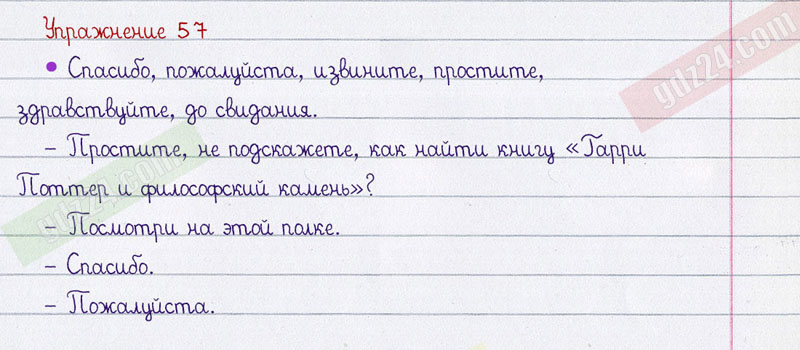 Упражнение 57
• Спасибо, пожалуйста, извините, простите,
здравствуйте, до свидания.
– Простите, не подскажете, как найти книгу «Гарри
Поттер и философский камень»?
– Посмотри на этой полке.
– Спасибо.
– Пожалуйста.
gdz24.com
gdz24.com